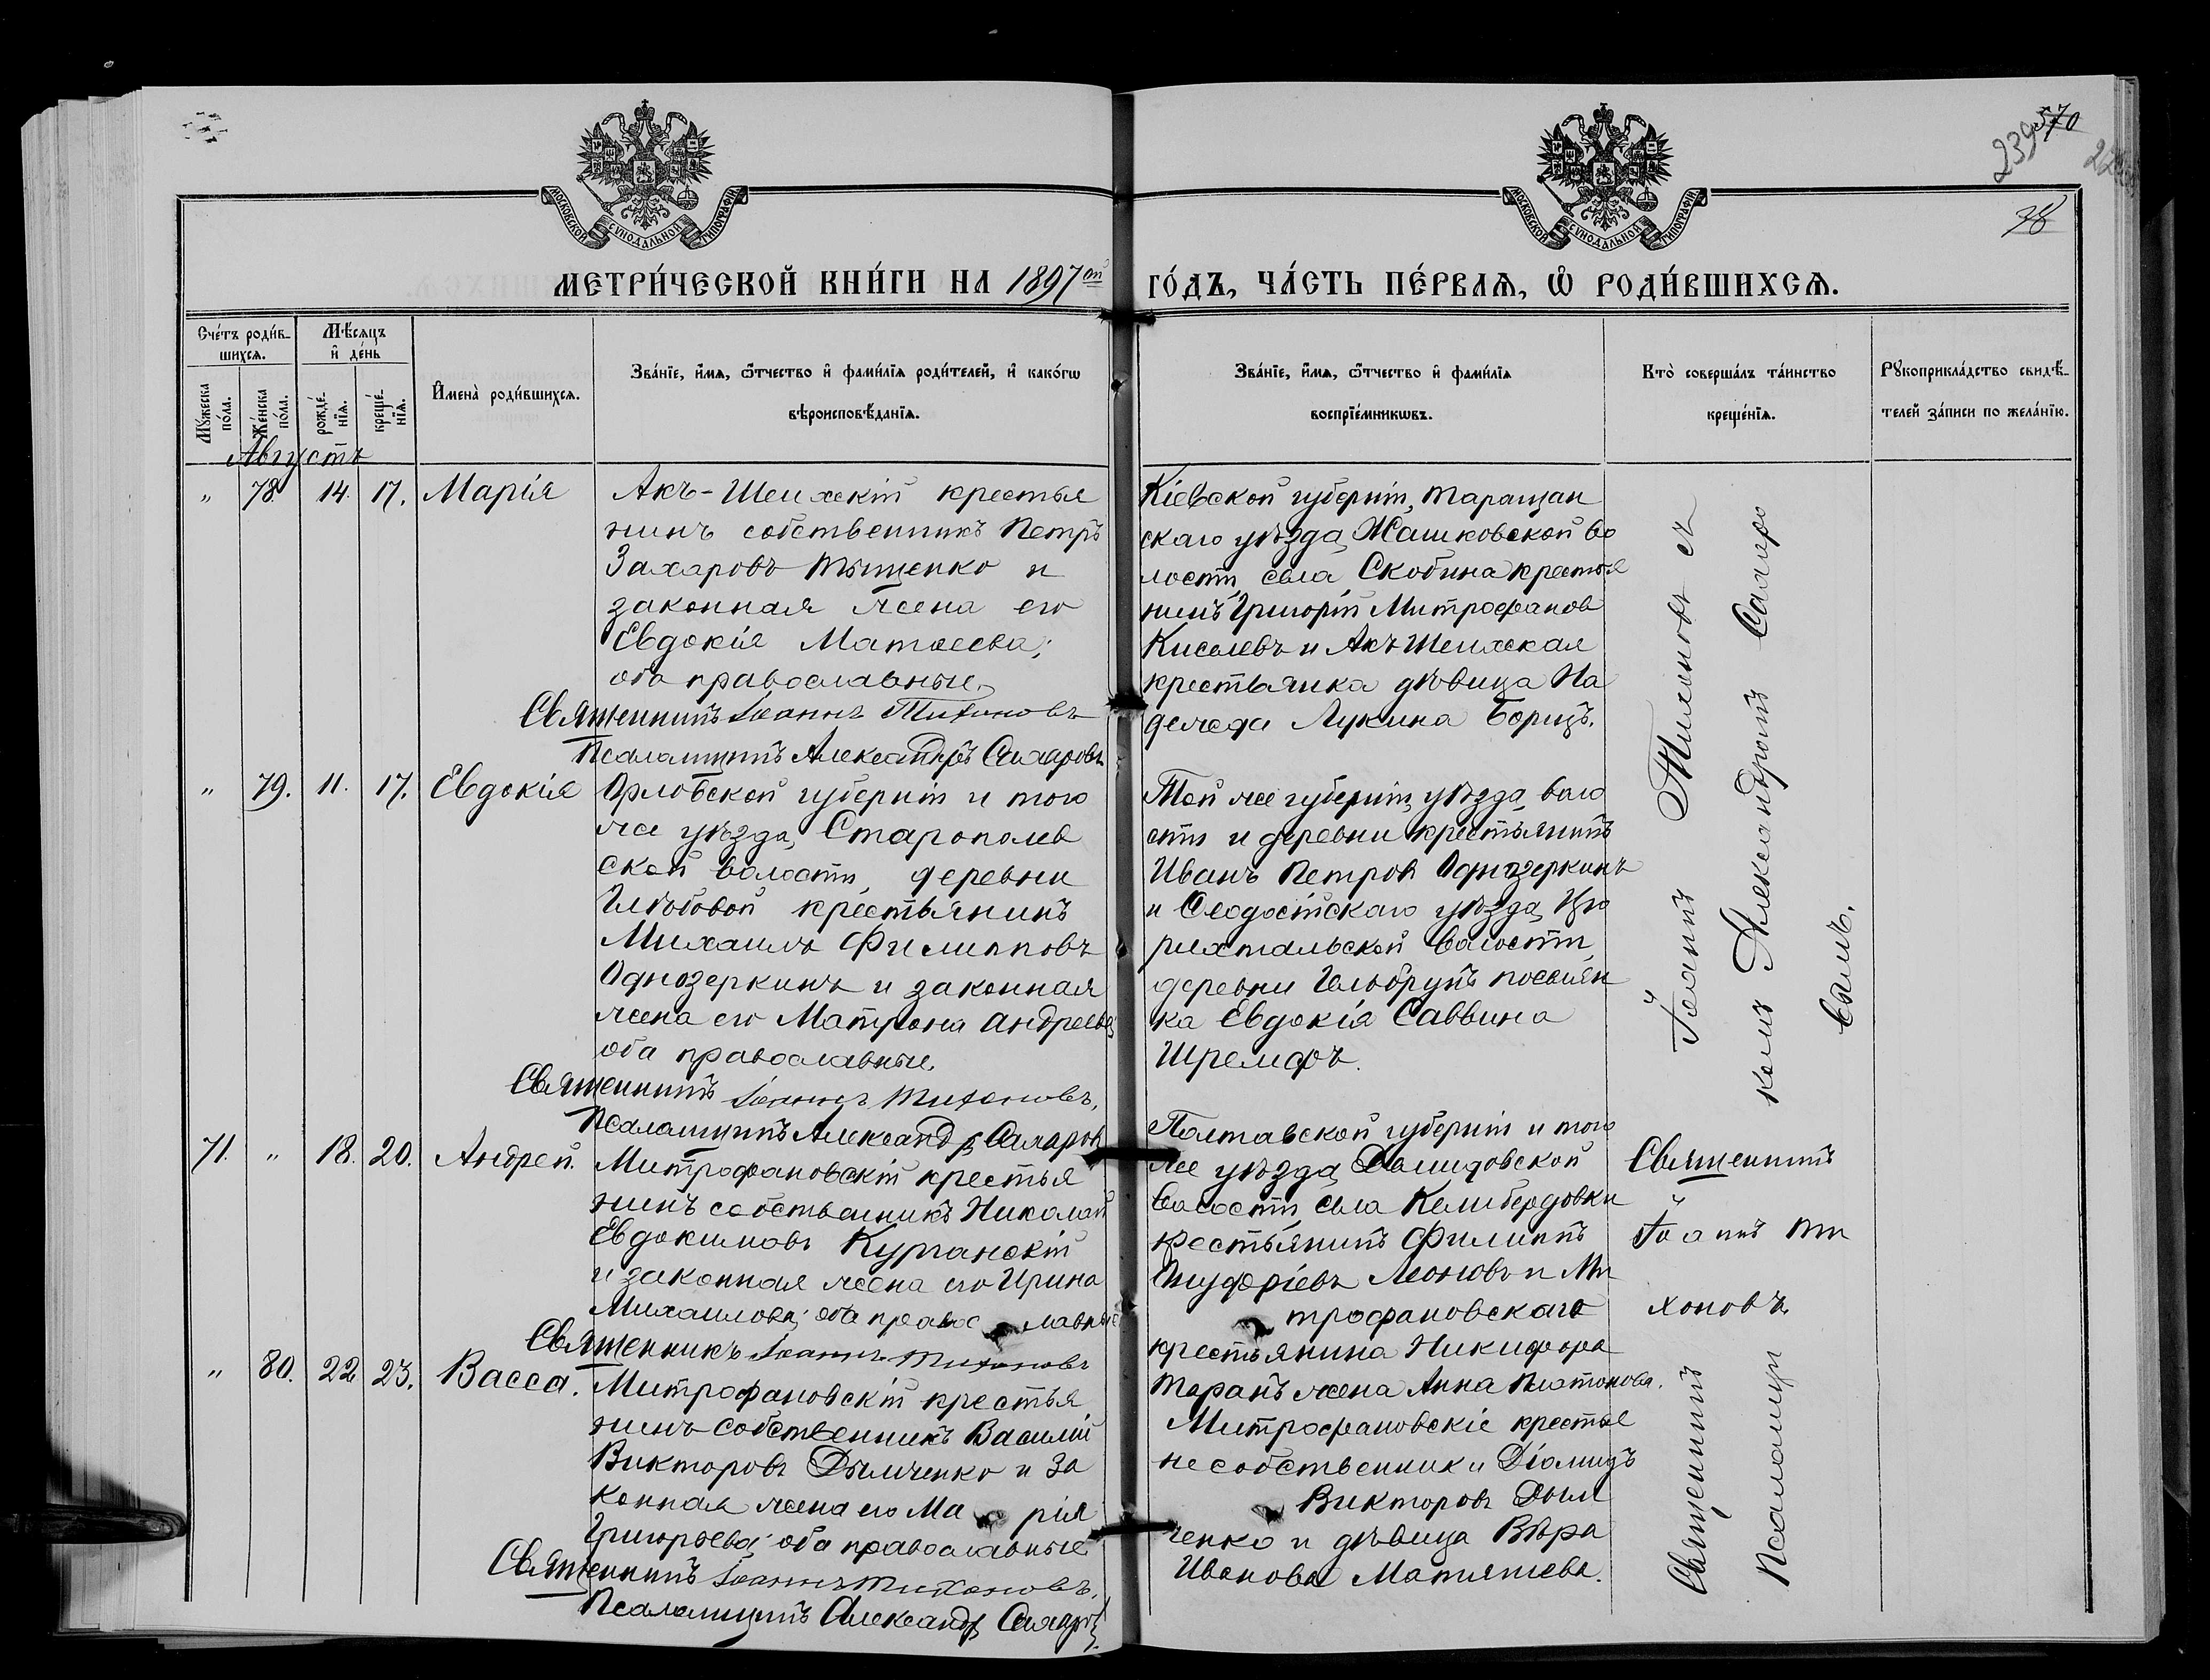 570
239
78
МОСКОВСКОЙ СѴНОДАЛЬНОЙ ТИПОГРАФІИ
МОСКОВСКОЙ СѴНОДАЛЬНОЙ ТИПОГРАФІИ
МЕТРИ́ЧЕСКОЙ КНИ́ГИ НА 1897ой ГО́ДЪ, ЧА́СТЬ ПЕ́РВАѦ, Ѽ РОДИ́ВШИХСѦ.
Сче́тъ роди́вшихсѧ.
Мꙋ́жеска по́ла.
Же́нска по́ла.
Мѣ́сѧцъ и҆ де́нь
рожде́нїѧ.
креще́нїѧ.
И҆мена̀ роди́вшихсѧ.
Зва́нїе, и҆́мѧ, ѻ҆́тчество и҆ фами́лїѧ роди́телей, и҆ како́гѡ
вѣроисповѣ́данїѧ.
Зва́нїе, и҆́мѧ, ѻ҆́тчество и҆ фами́лїѧ
воспрїе́мникѡвъ.
Кто̀ соверша́лъ та́инство
креще́нїѧ.
Рꙋкоприкла́дство свидѣ́-
телей за́писи по жела́нїю.
Августъ
" 78. 14. 17. Марія
Акъ-Шеихскій крестья
нинъ собственникъ Петръ
Захаровъ Тыщенко и
законная жена его
Евдокія Матѳеева;
оба православные.
Священникъ Іоаннъ Тихоновъ
Псаломщикъ Александръ Сахаровъ
Кіевской губерніи, Таращан
скаго уѣзда, Жашковской во
лости, села Скобина крестья
нинъ Григорій Митрофанов
Киселевъ и Акъ Шеихская
крестьянка дѣвица На
дежда Лукина Борщъ.
" 79. 11. 17. Евдокія
Орловской губерніи и того
же уѣзда, Старополев
ской волости, деревни
Глѣбовой крестьянинъ
Михаилъ Филипповъ
Однозеркинъ и законная
жена его Матрона Андреева
оба православные.
Священникъ Іоаннъ Тихоновъ,
Псаломщикъ Александр Сахаров
Той же губерніи, уѣзда, воло
сти и деревни крестьянинъ
Иванъ Петров Однозеркинъ
и Ѳеодосійскаго уѣзда, Цю
рихтальской волости,
деревни Гельбрунъ поселян
ка Евдокія Саввина
Шремфъ.
Іоаннъ Тихоновъ съ
комъ Александромъ Сахаро
вымъ.
71. " 18. 20. Андрей.
Митрофановскій крестья
нинъ собственникъ Николай
Евдокимовъ Курганскій
и законная жена его Ирина
Михаилова; оба православные
Священникъ Іоаннъ Тихоновъ
Полтавской губерніи и того
же уѣзда, Демидовской
волости, села Келибердовки
крестьянинъ Филиппъ
Онуфріевъ Леоновъ и Ми
трофановскаго
крестьянина Никифора
Таранъ жена Анна Платонова.
Священникъ
Іоаннъ Ти
хоновъ.
" 80. 22 23. Васса.
Митрофановскій крестья
нинъ собственникъ Василій
Викторовъ Дымченко и за
конная жена его Марія
Григорьева; оба православные
Священникъ Іоаннъ Тихоновъ,
Псаломщикъ Александр Сахаров
Митрофановскіе крестья
не собственники Діомидъ
Викторовъ Дым
ченко и дѣвица Вѣра
Иванова Матяшева.
Священникъ
Псаломщи